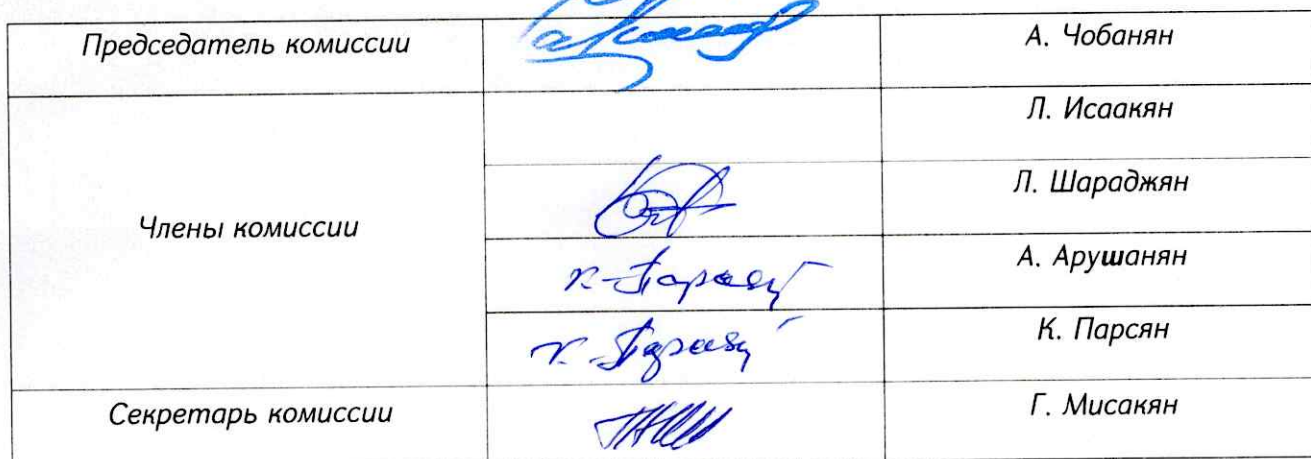 Председатель комиссии
А. Чобанян
Члены комиссии
Л. Исаакян
Л. Шараджян
А. Арушанян
К. Парсян
Секретарь комиссии
Г. Мисакян